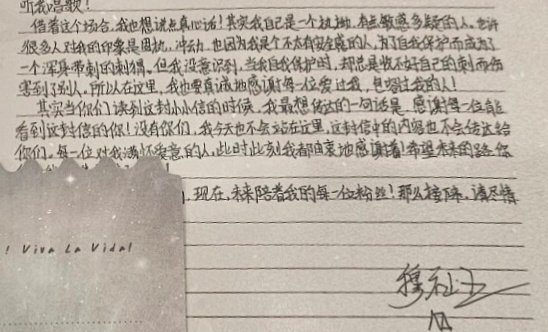 听我唱歌!
借着这个场合,我也想说点真心话!其实我自己是一个执拗,有点敏感多疑的人。也许
很多人对我的印象是固执,冲动。也因为我是个不太有安全感的人,为了自我保护而成为了
一个浑身带刺的刺猬。但我没意识到,当我自我保护时,却总是收不好自己的刺而伤
害到了别人。所以在这里,我也要真诚地感谢每一位爱过我,包容过我的人!
其实当你们读到这封小小信的时候,我最想传达的一句话是,感谢每一位能
看到这封信的你!没有你们,我今天也不会站在这里,这封信中的内容也不会传达给
你们。每一位对我满怀爱意的人,此时此刻我都由衷地感谢着!希望未来的路,你
现在,未来陪着我的每一位粉丝!那么接下来,请尽情
! Viva La Vida!
穆祉丞